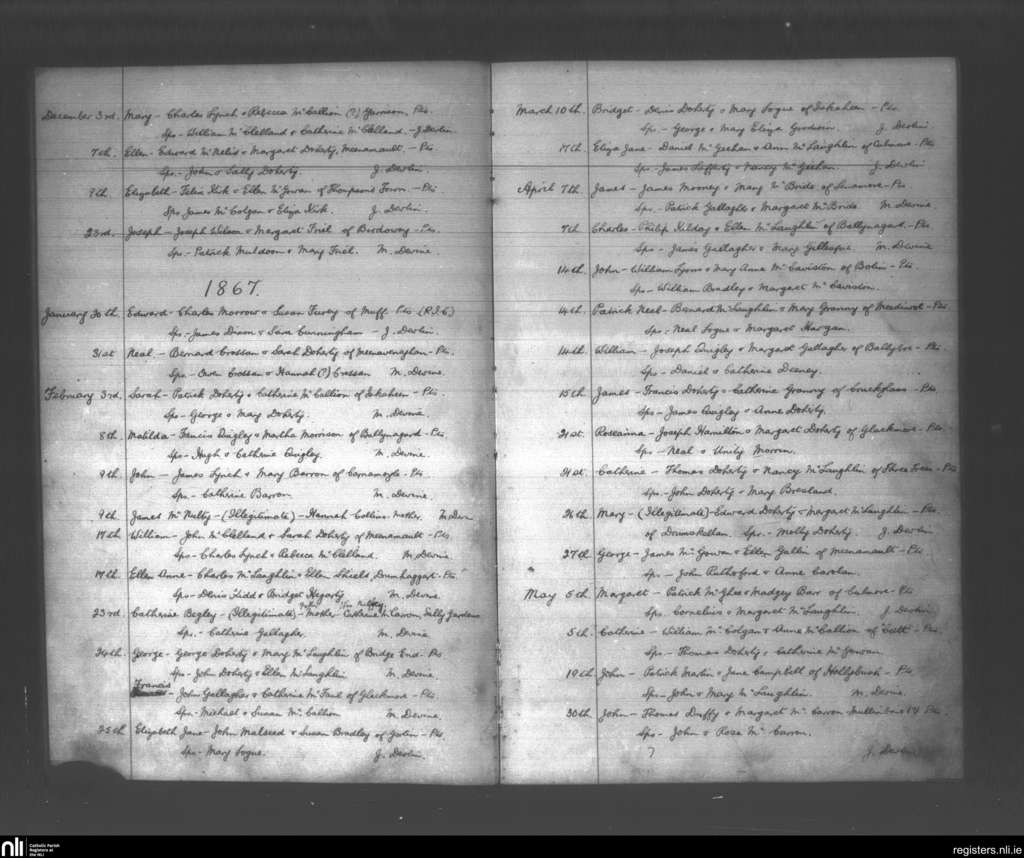 December 3rd. Mary - Charles Lynch & Rebecca McCallion (?) Garrison Pts.
Sps - William McClelland & Catherine McClelland - J Devlin.
7th. Ellen - Edward McNelis & Margaret Doherty, Meenanault. - Pts
Sps - John & Sally Doherty. J. Devlin.
9th. Elizabeth - Felix Kirk & Ellen McGowan of Thompsons Town - Pts
Sps James McColgan & Eliza Kirk. J. Devlin.
23rd. Joseph - Joseph Wilson & Margaret Friel of - Pts.
Sps - Patrick Muldoon & Mary Friel. M. Devine.
1867.
January 30th. Edward - Charles Morrow & Susan Furey of Muff. Pts (R.I.C)
Sps - James Dixon & Sara Cunningham - J. Devlin.
31st Neal - Bernard Crossan & Sarah Doherty of Meenavenaghan - Pts.
Sps - Owen Crossan & Hannah (?) Crossan M. Devine.
February 3rd. Sarah - Patrick Doherty & Catherine McCallion of Iskaheen - Pts
Sps - George & Mary Doherty. M. Devine.
8th. Matilda - Francis Quigley & Martha Morrison of Ballynagard - Pts
Sps - Hugh & Catherine Quigley. M. Devine.
9th. John - James Lynch & Mary Barron of Carnamoyle - Pts
Sps - Catherine Barron. M. Devine.
9th. James McNulty - (Illegitimate) - Hannah Collins - Mother.
17th William - John McClelland & Sarah Doherty of Meenanault - Pts
Sps - Charles Lynch & Rebecca McClelland. M. Devine.
17th. Ellen Anne - Charles McLaughlin & Ellen Shields, Drumhaggart - Pts
Sps - Denis Kidd & Bridget Hegarty M. Devine.
23rd. Catherine Begley - (Illegitimate) - Mother - Catherine McCarron, Sally Gardens
Sps. - Catherine Gallagher. M. Devine
24th. George - George Doherty & Mary McLaughlin of Bridge End - Pts
Sps - John Doherty & Ellen McLaughlin M. Devine.
Francis
- John Gallagher & Catherine McFaul of Glackmore - Pts.
Sps - Michael & Susan McCallion M. Devine.
25th Elizabeth Jane - John Malseed & Susan Bradley of - Pts.
Sps - Mary Logue. J. Devlin.
March 10th. Bridget - Denis Doherty & Mary Logue of Iskaheen - Pts
Sps. - George & Mary Eliza Goodwin. J. Devlin
17th Eliza Jane - Daniel McGeehan & Ann McLaughlin of Culmore - Pts
Sps - James Lafferty & Nancy McGeehan. J. Devlin
April 7th. James - James Mooney & Mary McBride of - Pts
Sps. - Patrick Gallagher & Margaret McBride M. Devine.
7th Charles - Philip Kilday & Ellen McLaughlin of Ballynagard - Pts
Sps - James Gallagher & Mary Gillespie. M. Devine
14th. John - William Lyons & Mary Anne McCaviston of Bolin - Pts.
Sps - William Bradley & Margaret McCaviston.
14th. Patrick Neal - Bernard McLaughlin & Mary Granny of - Pts
Sps - Neal Logue & Margaret Hargan.
14th. William - Joseph Quigley & Margaret Gallagher of Ballyboe - Pts
Sps - Daniel & Catherine Deeney.
15th James - Francis Doherty & Catherine Granny of Crockglass - Pts
Sps - James Quigley & Anne Doherty.
21st. Roseanna - Joseph Hamilton & Margaret Doherty of Glackmore - Pts.
Sps - Neal & Unity Morrin.
21st. Catherine - Thomas Doherty & Nancy McLaughlin of Three Trees - Pts
Sps - John Doherty & Mary Bresland.
26th. Mary - (Illegitimate) - Edward Doherty & Margaret McLaughlin - Pts.
of Drumskellan. Sps - Melly Doherty. J. Devlin
27th George - James McGowan & Ellen Gallin of Meenanault - Pts.
Sps. - John Rutherford & Anne Carolan.
May 5th. Margaret - Patrick McGhee & Madgey Barr of Culmore - Pts
Sps. Cornelius & Margaret McLaughlin. J. Devlin
5th. Catherine - William McColgan & Anne McCallion of - Pts.
Sps - Thomas Doherty & Catherine McGowan
19th John - Patrick Martin & Jane Campbell of Hollybush - Pts
Sps - John & Mary McLaughlin. M. Devine.
30th. John - Thomas Duffy & Margaret McCarron - Pts.
Sps - John & Rose McCarron.
7 J. Devlin
nli Catholic Parish
Registers at
the NLI
registers.nli.ie